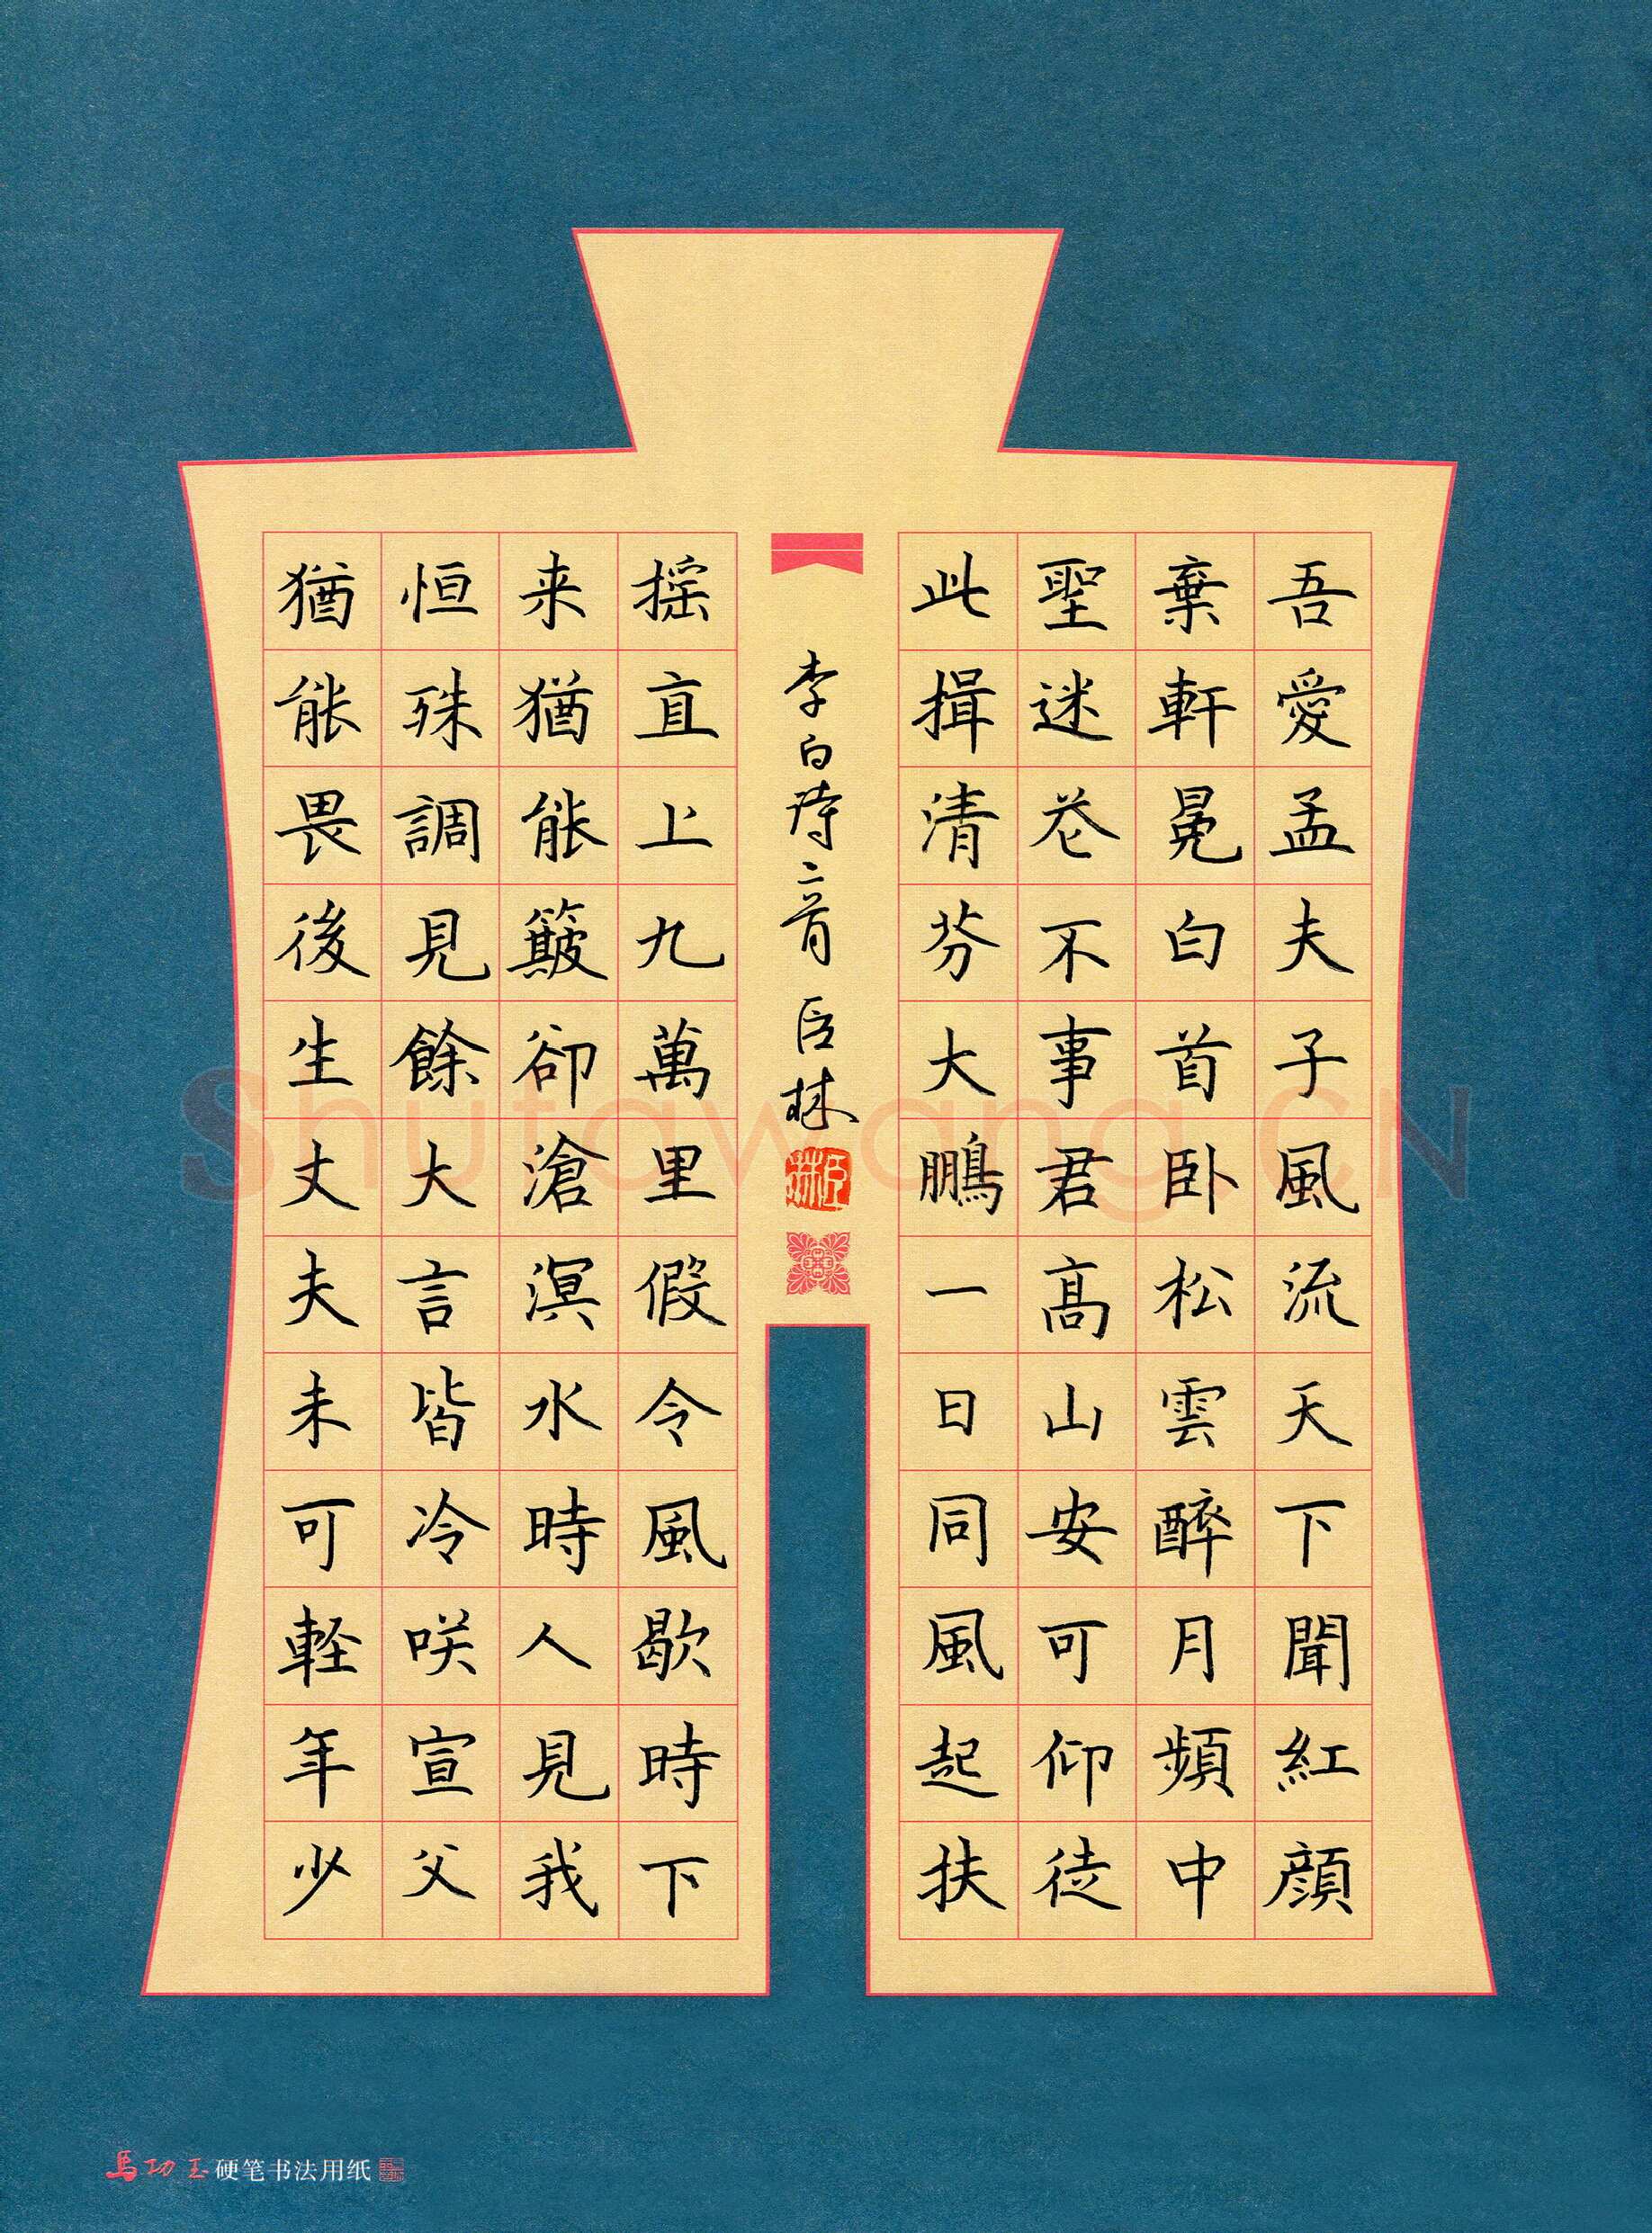 吾愛孟夫子風流天下聞紅顔
棄軒冕白首臥松雲醉月頻中
聖迷花不事君髙山安可仰徒
此揖清芬大鵬一日同風起扶
李白詩二首 臣林
臣林
搖直上九萬里假令風歇時下
来猶能簸卻滄溟水時人見我
恒殊調見餘大言皆冷咲宣父
猶能畏後生丈夫未可軽年少
Shufawang.CN
馬功玉硬笔书法用纸